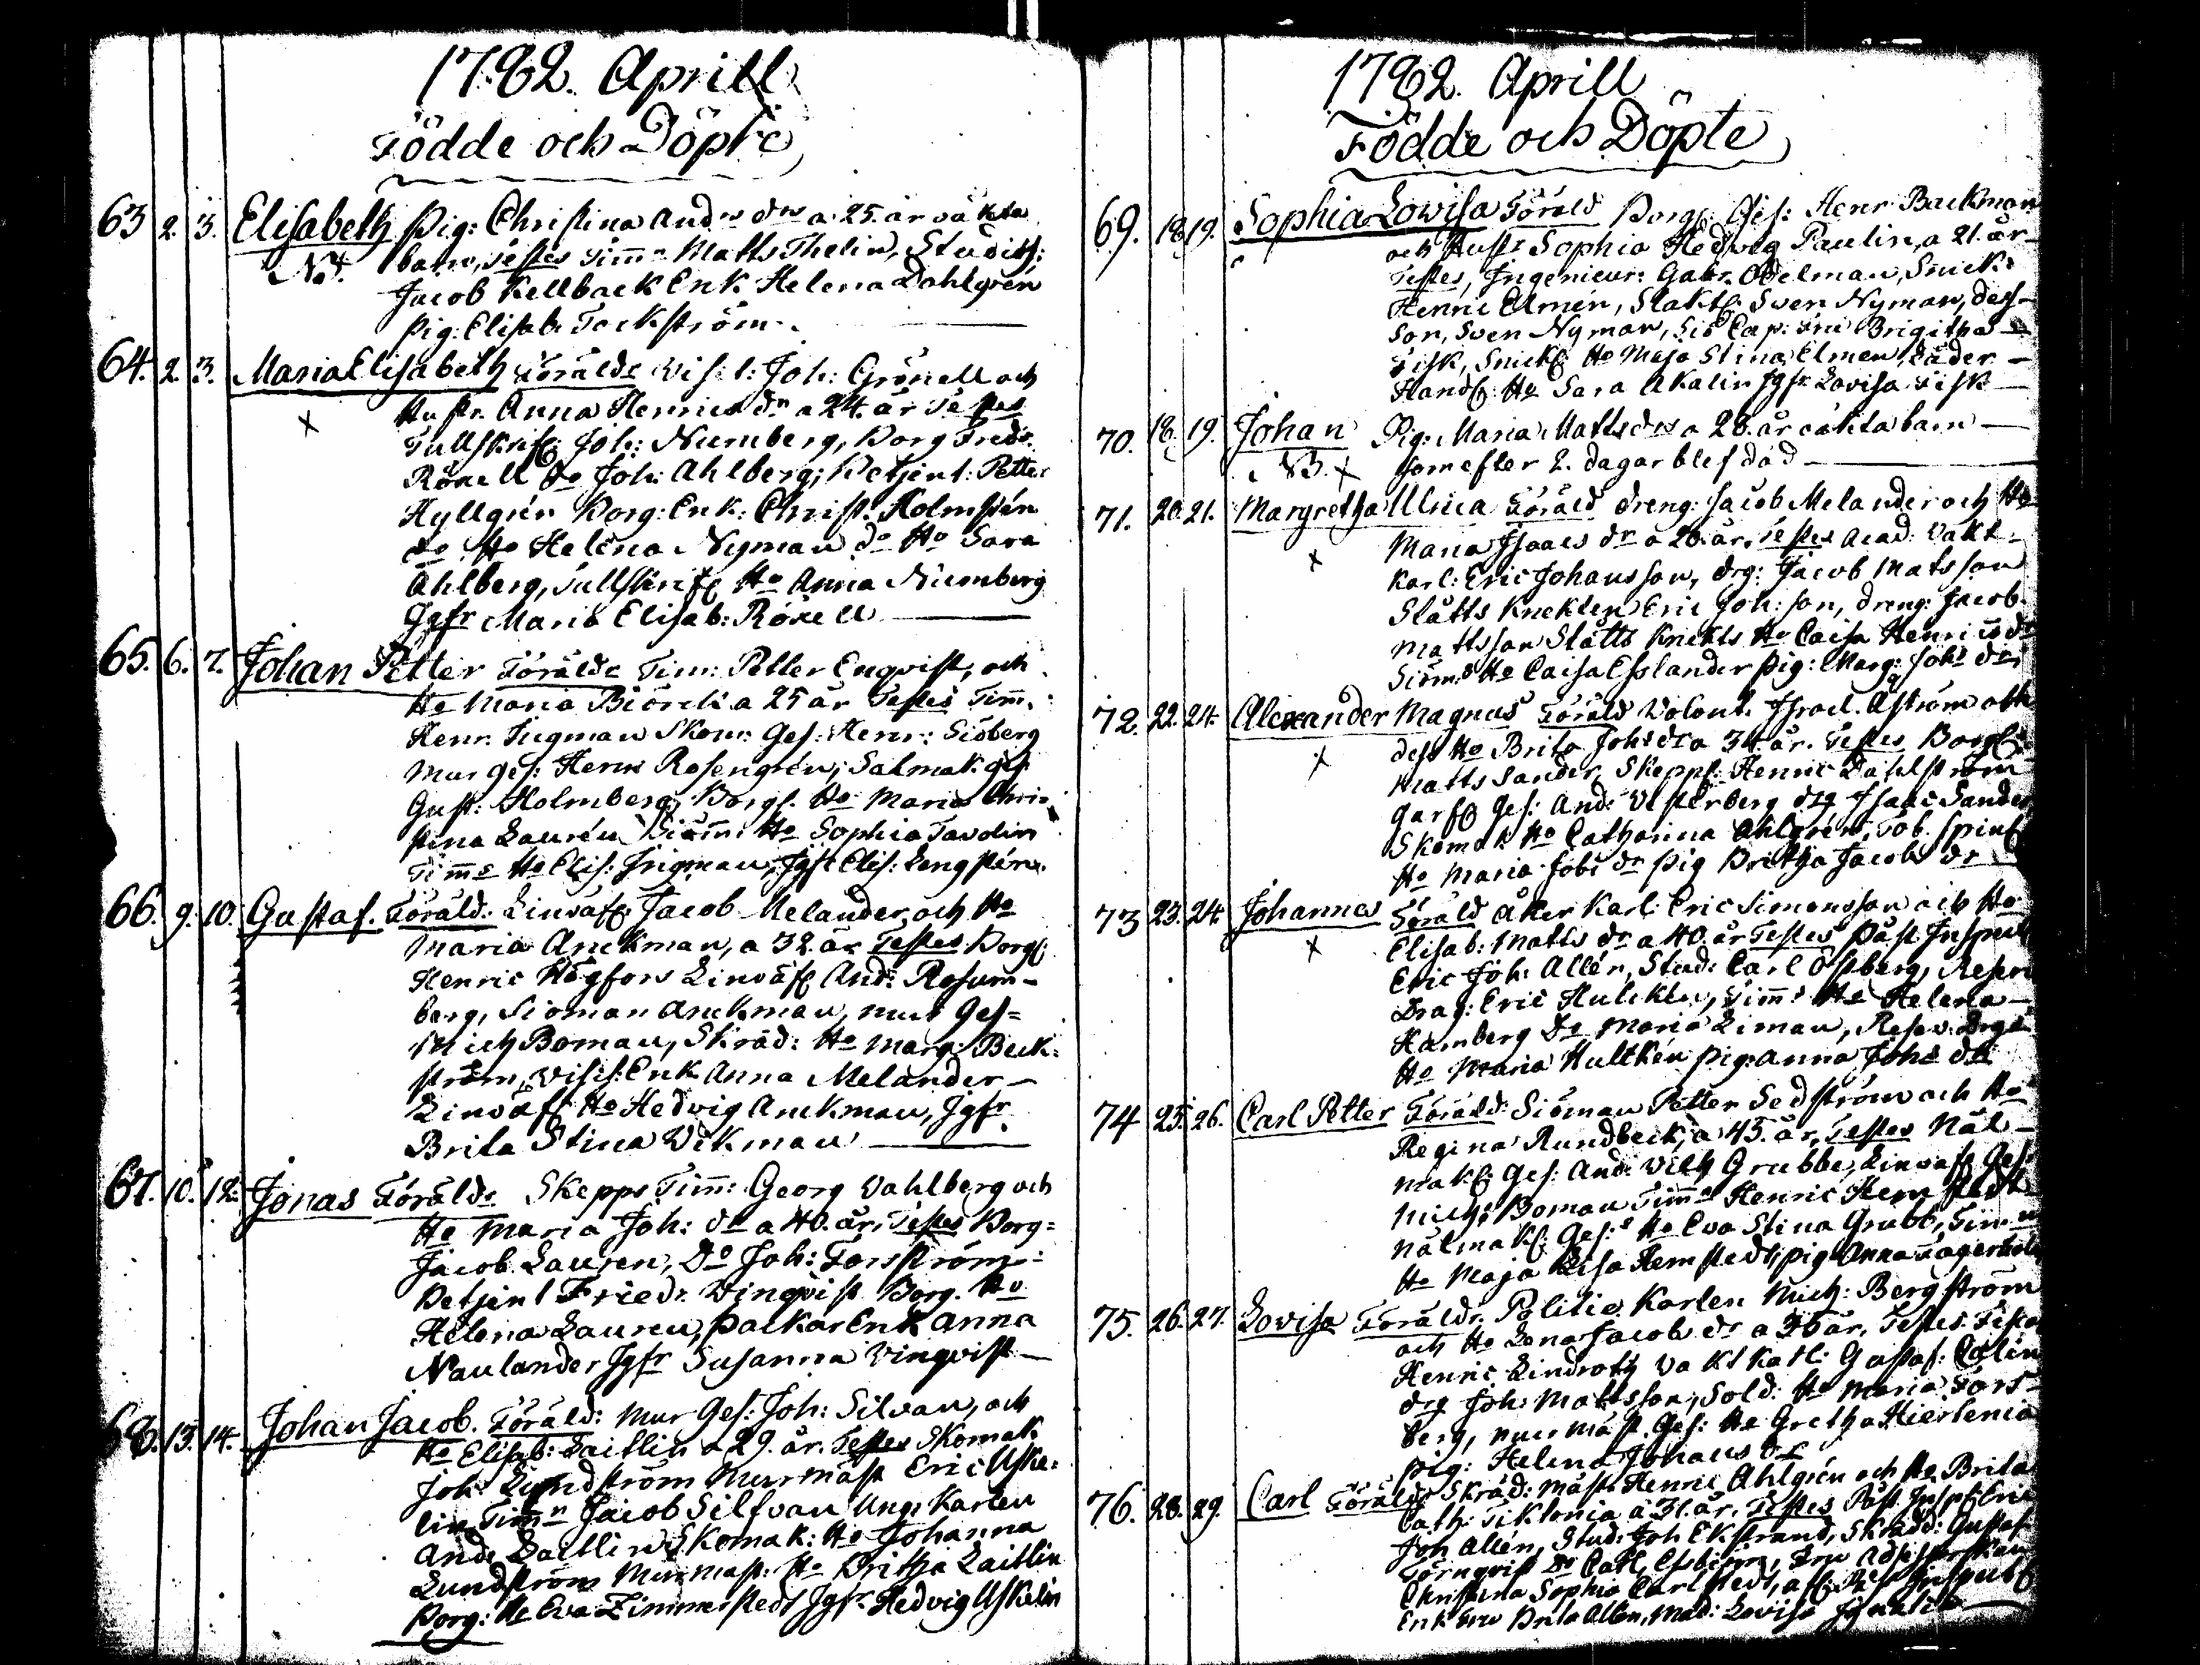 1782. Aprill
Födde och Döpte
63 2. 3. Elisabeth Pig: Christina And:s dr a 25. år oäkta
Nt. barn, Testes Timm: Matts Thelin, Studios:
Jacob Kellback Enk. Helena Dahlgrén
Pig: Elisab: Tockström.
64. 2. 3. Maria Elisabeth Föräldr Vis: l: Joh: Grönell och
x Hustr. Anna Henrics dr a 24. år Testes
Tullskrif: Joh: Nurnberg, Borg Fredr
Röxell do Joh: Ahlberg; Betjent: Petter
Hyllgrén Borg: Enk: Christ. Holmstén
do Ho Helena Nyman do Ho Sara
Ahlberg, Tullskrif: Ho Anna Nürnberg
Jgfr Maria Elisab: Röxell
65. 6. 7. Johan Petter Föräldr Tim: Petter Enqvist, och
Ho Maria Biörck a 25 år Testes Timm.
Henr. Ingman Skom: Ges: Henr: Siöberg
Mur ges: Henr Rosengrén; Salmak. ges
Gust: Holmberg, Borg. Ho Maria Chri-
stina Laurén Siöm: Ho Sophia Tavolin
Timm: Ho Elis: Ingman, Jgfr Elis: Lengstén.
66. 9. 10. Gustaf. Föräld: Linväf: Jacob Melander, och Ho
Maria Anckman, a 32. år Testes Borg:
Henric Högfors Linväf: And: Rosum-
berg, Sioman Anckman, Mur Ges=
Mich Boman, Skräd: Ho Marg: Beck-
ström, Visit: Enk Anna Melander
Linväf: Ho Hedvig Anckman, Jgfr
Brita Stina Wikman
67. 10. 12. Jonas Föräldr Skepps Timm: Georg Wahlberg och
Ho Maria Joh: dr a 40. år, Testes Borg=
Jacob Lauren, Do Joh: Forsström:
Betjent Friedr Winqvist Borg. Ho
Helena Lauren, Packar Enk Anna
Naulander Jgfr Susanna Winqvist
68. 13. 14. Johan Jacob. Föräld: Mur Ges: Joh: Silvan, och
Ho Elisab: Laitlin a 29. år. Testes Skomak:
Joh: Lundström Murmäst Eric Uske-
lin Timm: Jacob Silfvan Ung: Karlen
And: Laitlin Skomak: Ho Johanna
Lundström Murmäst: Ho Britha Laitlin
Borg: Ho Eva Zimmerstedt Jgfr. Hedvig Uskelin
1782. Aprill
Födde och Döpte
69. 18 19. Sophia Lovisa Föräld Borg: Ges: Henr Backman
och Hustr Sophia Hedvig Paulin, a 21. år
Testes, Ingenieur: Gabr. Odelman, Snick:
Henric Elmén, Slakt: Sven Nyman, dess
son, Sven Nyman, Siö Cap: Brigitha
Fisk, Snick: Ho Maja Stina Elmen, Läder
Handl: Ho Sara Akalin Jgfr Lovisa Fisk
70. 18. 19. Johan Pig: Maria Matts dr a 28. år oäkta barn
NB. x som efter 2. dagar blef död
71. 20. 21. Margretha Ulrica Föräld dreng: Jacob Melander och Ho
x Maria Isaacs dr a 26. år, Testes Acad: Vakt-
Karl: Eric Johansson, drg: Jacob Matsson
Slåtts Knekten Eric Joh: son, dreng: Jacob
Mattsson Slåtts Knekts Ho Caisa Henrics dr
Siöm:s Ho Caisa Esslander pig: Marg: Johs dr
72. 22. 24. Alexander Magnus Föräld Volont. Israel. Åström och
x dess Ho Brita Johs dr a 34. år. Testes Borg:
Matts Sander, Skepps: Henric Dahlström
Garf: Ges: And: Vesterberg drg Isaac Sander
Skomak Ho Catharina Ahlgrén, Tob. Spin:
Ho Maria Jobs dr Pig Britha Jacobs dr
73 23. 24. Johannes Föräld Åker Karl: Eric Simonsson och Ho
x Elisab: Matts dr a 40. år Testes Påst. Inspect
Eric Joh: Allén, Stud: Carl Östberg, Reserv
Drag: Eric Hultkén, Timm: Ho Helena
Hamberg Do Maria Liman, Reserv. Drg:
Ho Maria Hultkén pig: Anna Johs dr
74 25. 26. Carl Petter Föräld: Siöman Petter Sedström och Ho
Regina Rundbeck, a 45. år, Testes Nål-
mak: Ges: And: Vilh Grubbe, Linväf: Ges:
Mich: Boman Timm: Henric Hemstedt
Nålmak: Ges: Ho Eva Stina Grubb, Timm
Ho Maja Lisa Hemstedt, pig: Anna Lagerholm
75. 26. 27. Lovisa Föräldr. Politie Karlen Mich: Bergström
och Ho Lena Jacobs dr a 36 år, Testes
Henric Lindroth Vakt Karl: Gustaf: Colin
drg Joh: Mattsson, Sold: Ho Maria Fors-
berg, Murmäst. Ges: Ho Gretha Hiertenia
pig: Helena Johans dr
76. 28. 29. Carl Föräldr Skräd: mäst: Henric Ahlgrén och Ho Brita
Cath: Tiklonia a 31. år, Testes Påst Insp: Eric
Joh Allén, Stud: Joh Ekstrand, Skrädd: Gustaf
Törnqvist Do Carl
Christina Sophia Carlstedt,
Enk Brita Allén, Mad: Lovisa